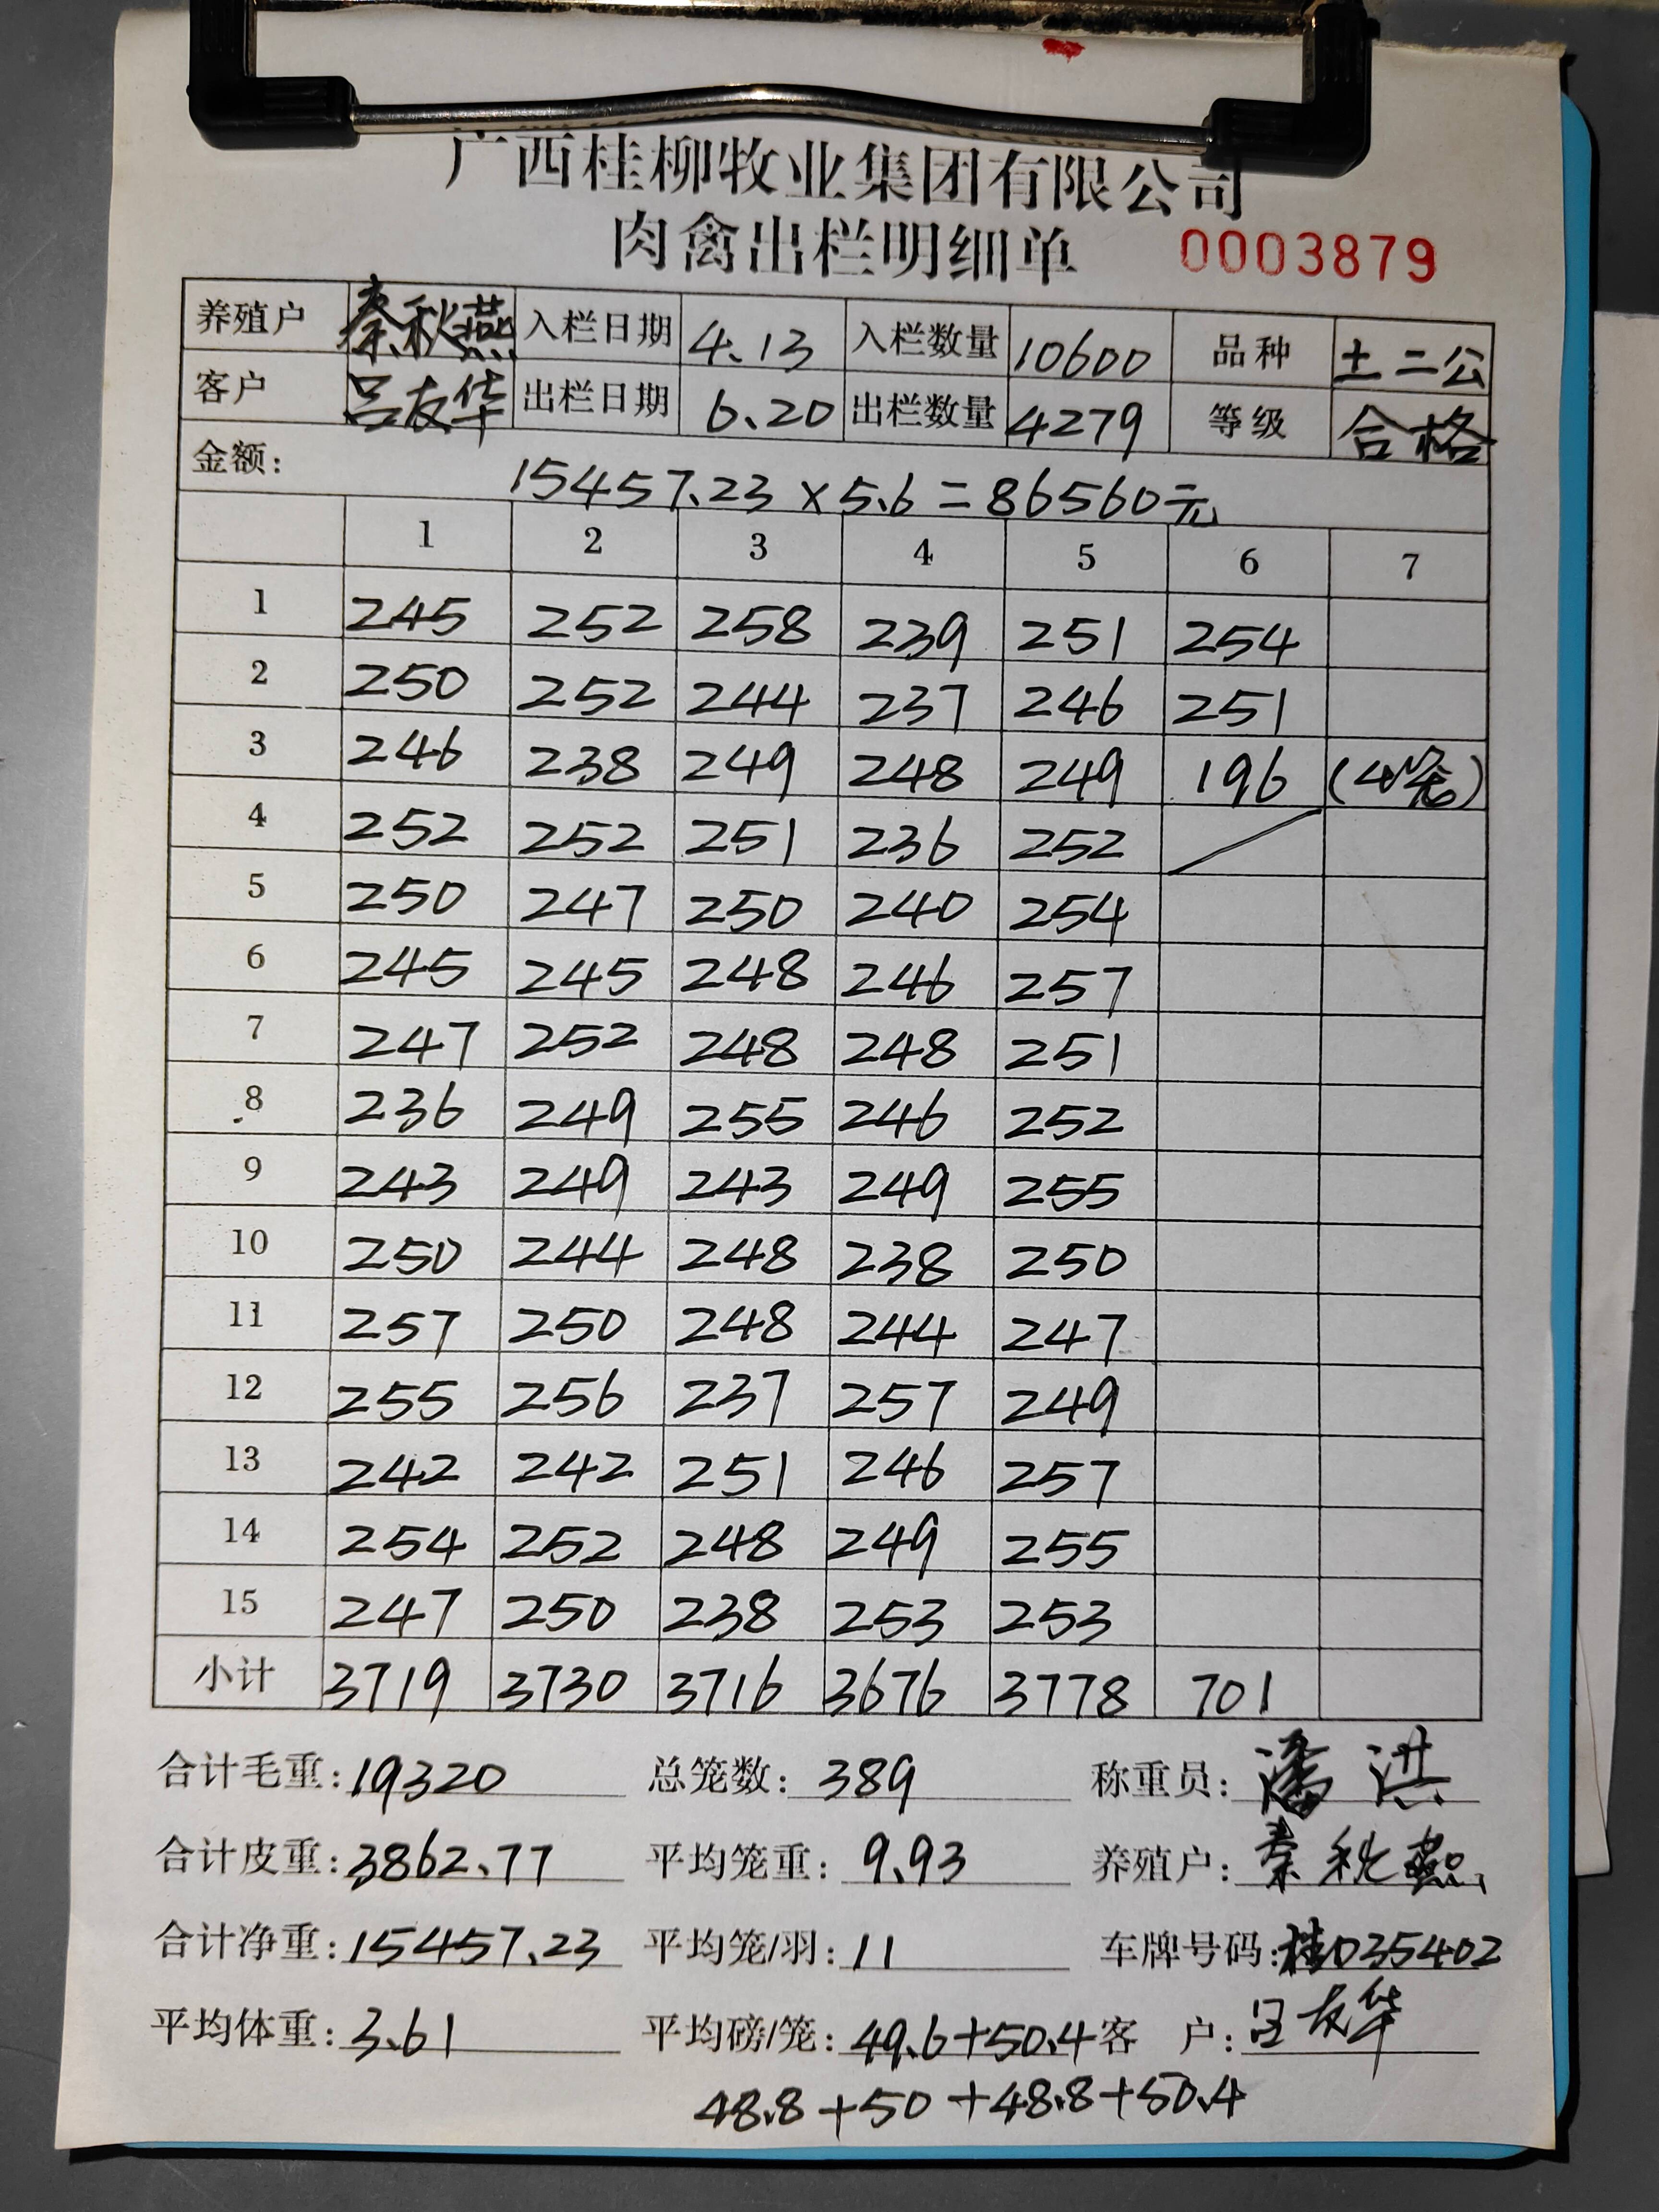 广西桂柳牧业集团有限公司
肉禽出栏明细单 0003879
养殖户 秦秋燕 入栏日期 4.13 入栏数量 10600 品种 土二公
客户 吕友华 出栏日期 6.20 出栏数量 4279 等级 合格
金额: 15457.23×5.6=86560元
1 2 3 4 5 6 7
1 245 252 258 239 251 254
2 250 252 244 237 246 251
3 246 238 249 248 249 196 (4笼)
4 252 252 251 236 252
5 250 247 250 240 254
6 245 245 248 246 257
7 247 252 248 248 251
8 236 249 255 246 252
9 243 249 243 249 255
10 250 244 248 238 250
11 257 250 248 244 247
12 255 256 237 257 249
13 242 242 251 246 257
14 254 252 248 249 255
15 247 250 238 253 253
小计 3719 3730 3716 3676 3778 701
合计毛重: 19320 总笼数: 389 称重员: 潘洪
合计皮重: 3862.77 平均笼重: 9.93 养殖户: 秦秋燕
合计净重: 15457.23 平均笼/羽: 11 车牌号码: 桂035402
平均体重: 3.61 平均磅/笼: 49.6+50.4 客 户: 吕友华
48.8+50+48.8+50.4